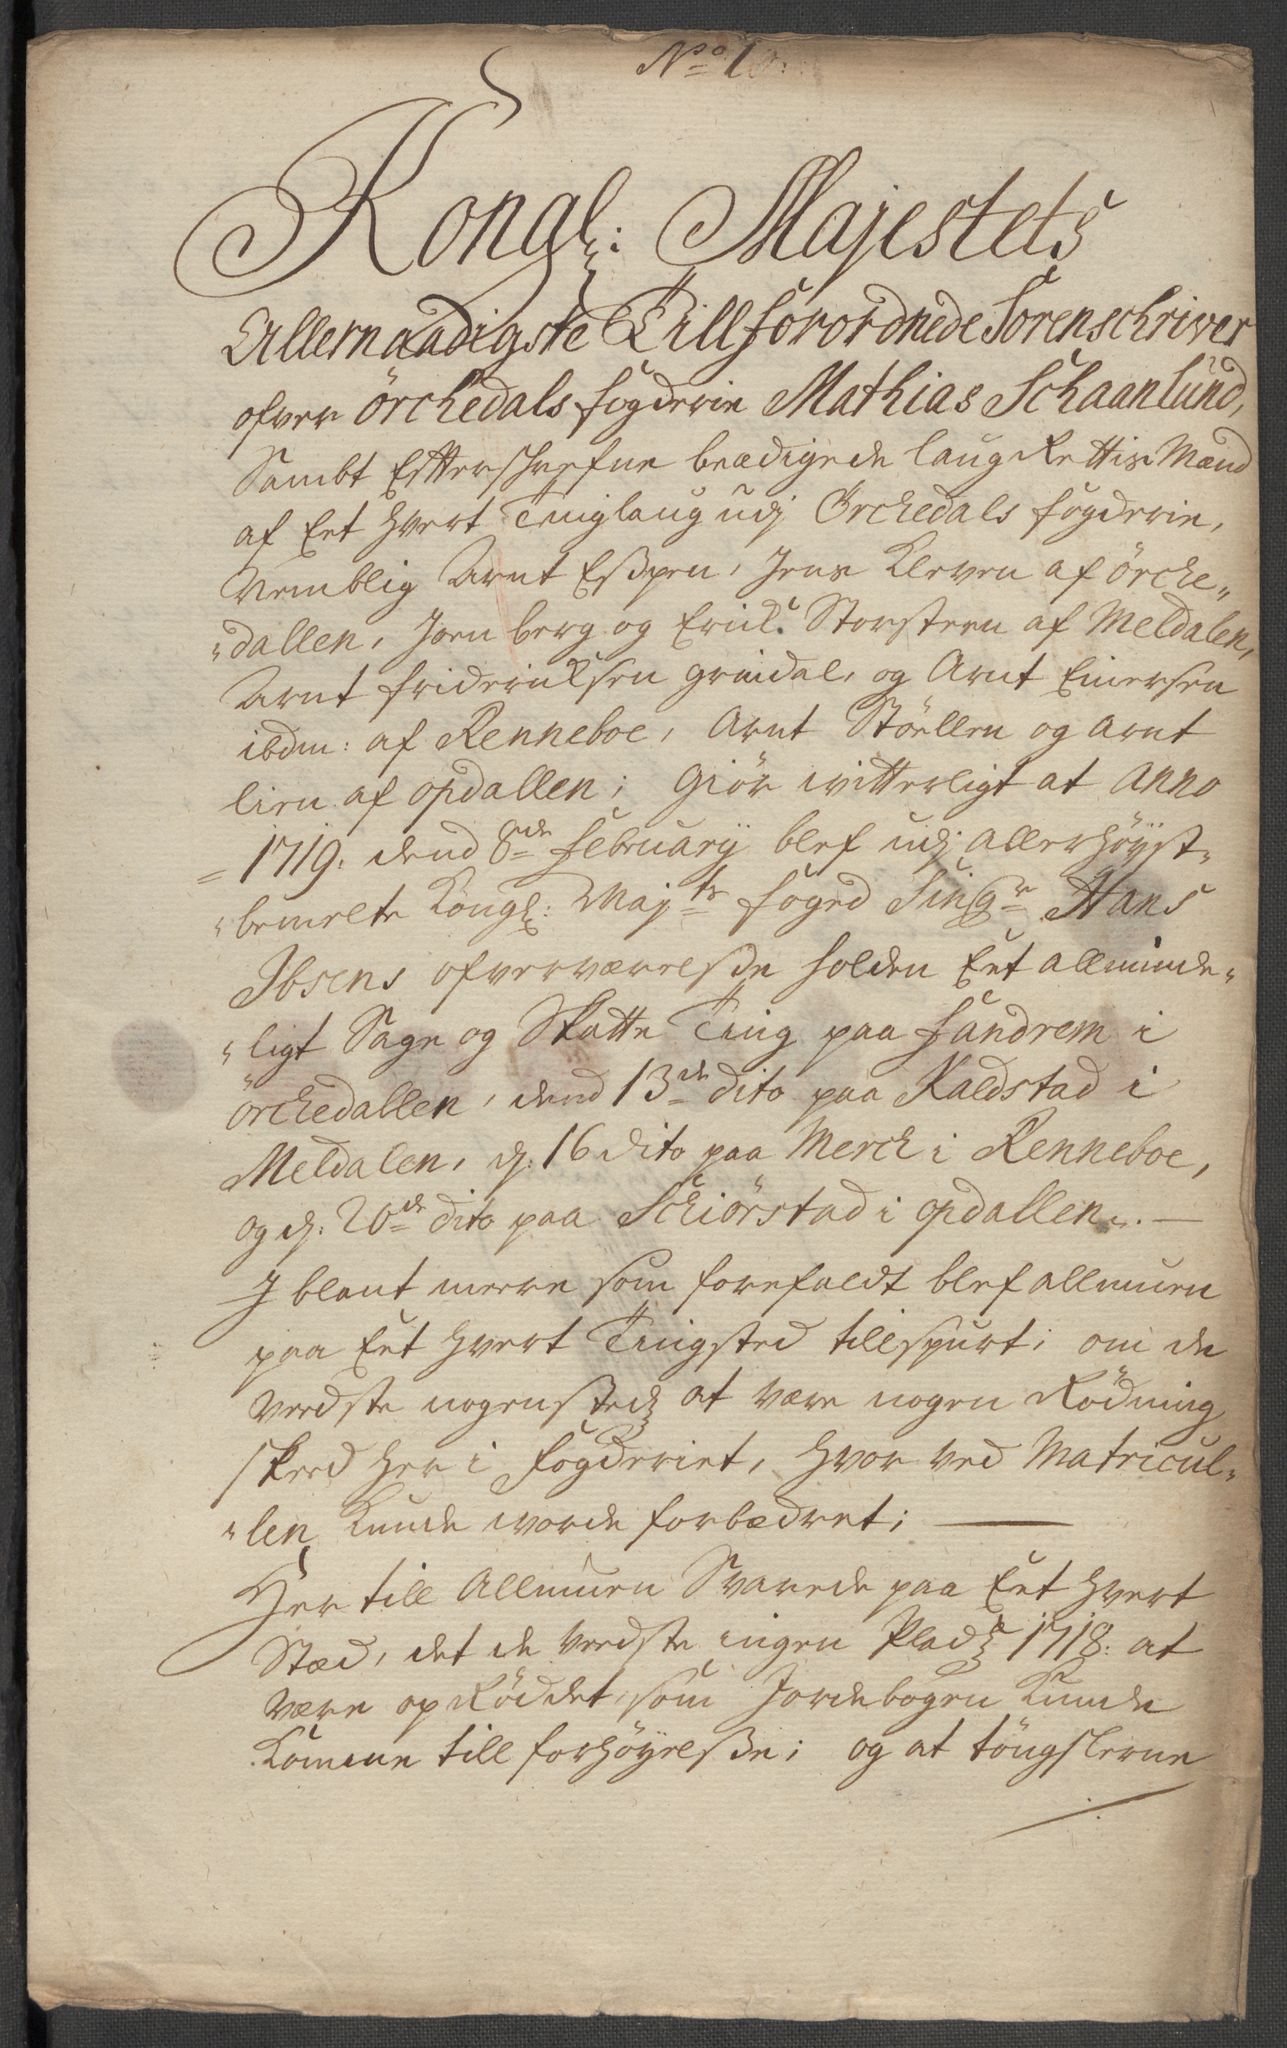 No 1
Kongl: Majestets
Allernaadigste Tillforordnede Sorenschriver
ofver Örchedals fogderie Mathias Schaanlund,
Sambt Efterschrefne beædigede laug Rettis Mænd
af Eet hvert Tinglaug udj Örchedals fogderie,
Nemblig Arnt Eßpen, Jens Kleven af Örche„
„dallen, Joen berg og Erich Storsteen af Meldalen,
Arnt friderichsen grindal, og Arnt Einersen
ibdm: af Renneboe, Arnt Stöellen og Arnt
lien af opdallen; Giör witterligt at Anno
1719. dend 8de february blef udj Allerhöyst„
„bemelte Kongl: Mayts foged Singr Hans
Ibsens ofverværelße holden Eet allminde„
„ligt Sage og Skatte Ting paa fandrem i
örchedallen, dend 13de dito paa Kaldstad i
Meldalen, d: 16 dito paa Merch i Renneboe,
og d: 20de dito paa Schiörstad i opdallen. —
I blant meere som forefaldt blef allmuen
paa Eet hvert Tingsted tillspurt, om de
veedste nogensteds at være nogen Rödning
skeed her i fogderiet, hvor ved Matricul„
„len kunde worde forbædret; —
Her till Allmuen Svarede paa Eet hvert
Stæd, det de veedste ingen Plads 1718. at
være op Röddet, som Jordebogen kunde
komme till forhöyelße; og at töngslerne